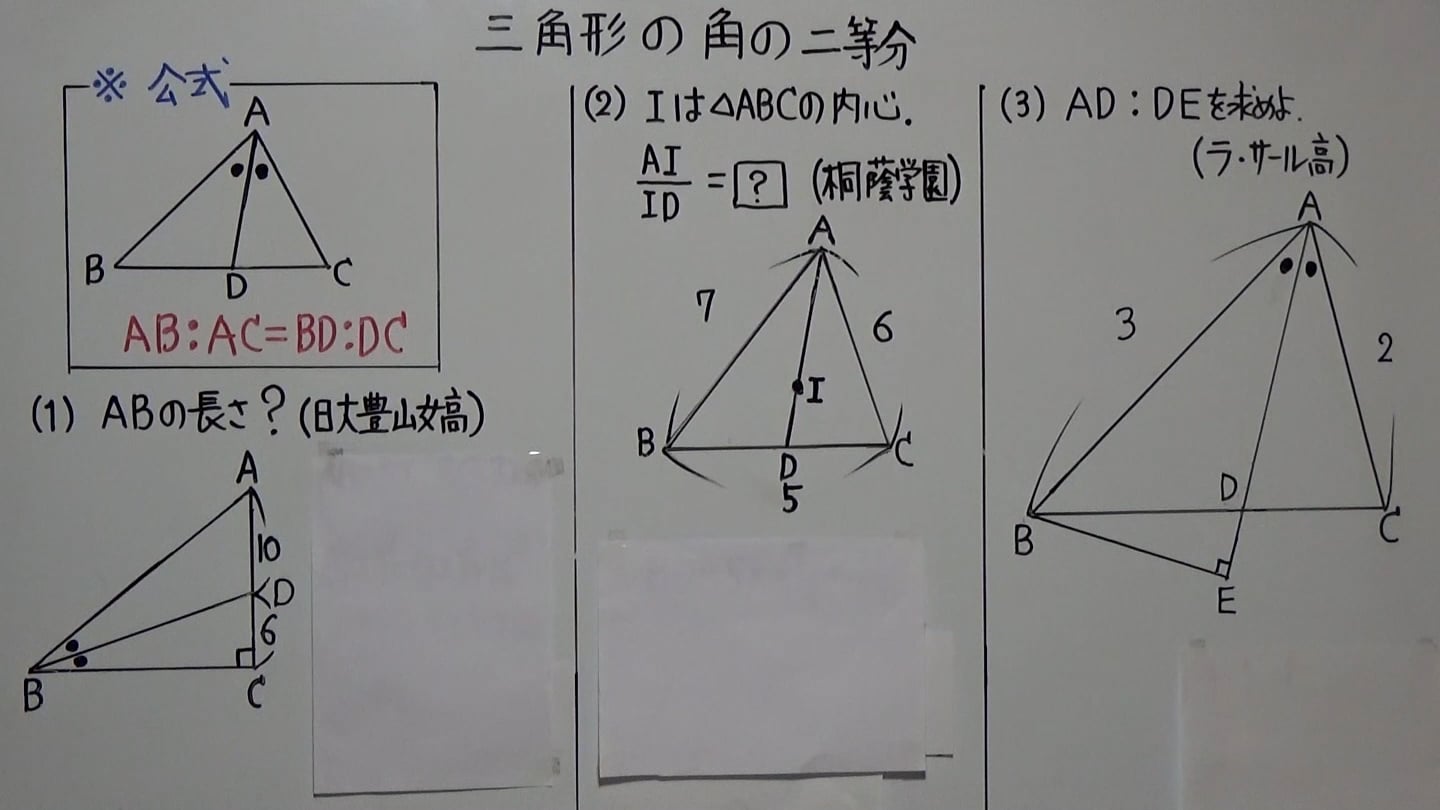 三角形の角の二等分
※ 公式
A
B
D
C
AB:AC=BD:DC
(1) ABの長さ?(日大豊山女高)
A
10
D
6
B
C
(2) Iは△ABCの内心.
AI/ID = ? (桐蔭学園)
A
7
6
I
B
D
C
5
(3) AD:DEを求めよ.
(ラ・サール高)
A
3
2
D
B
C
E